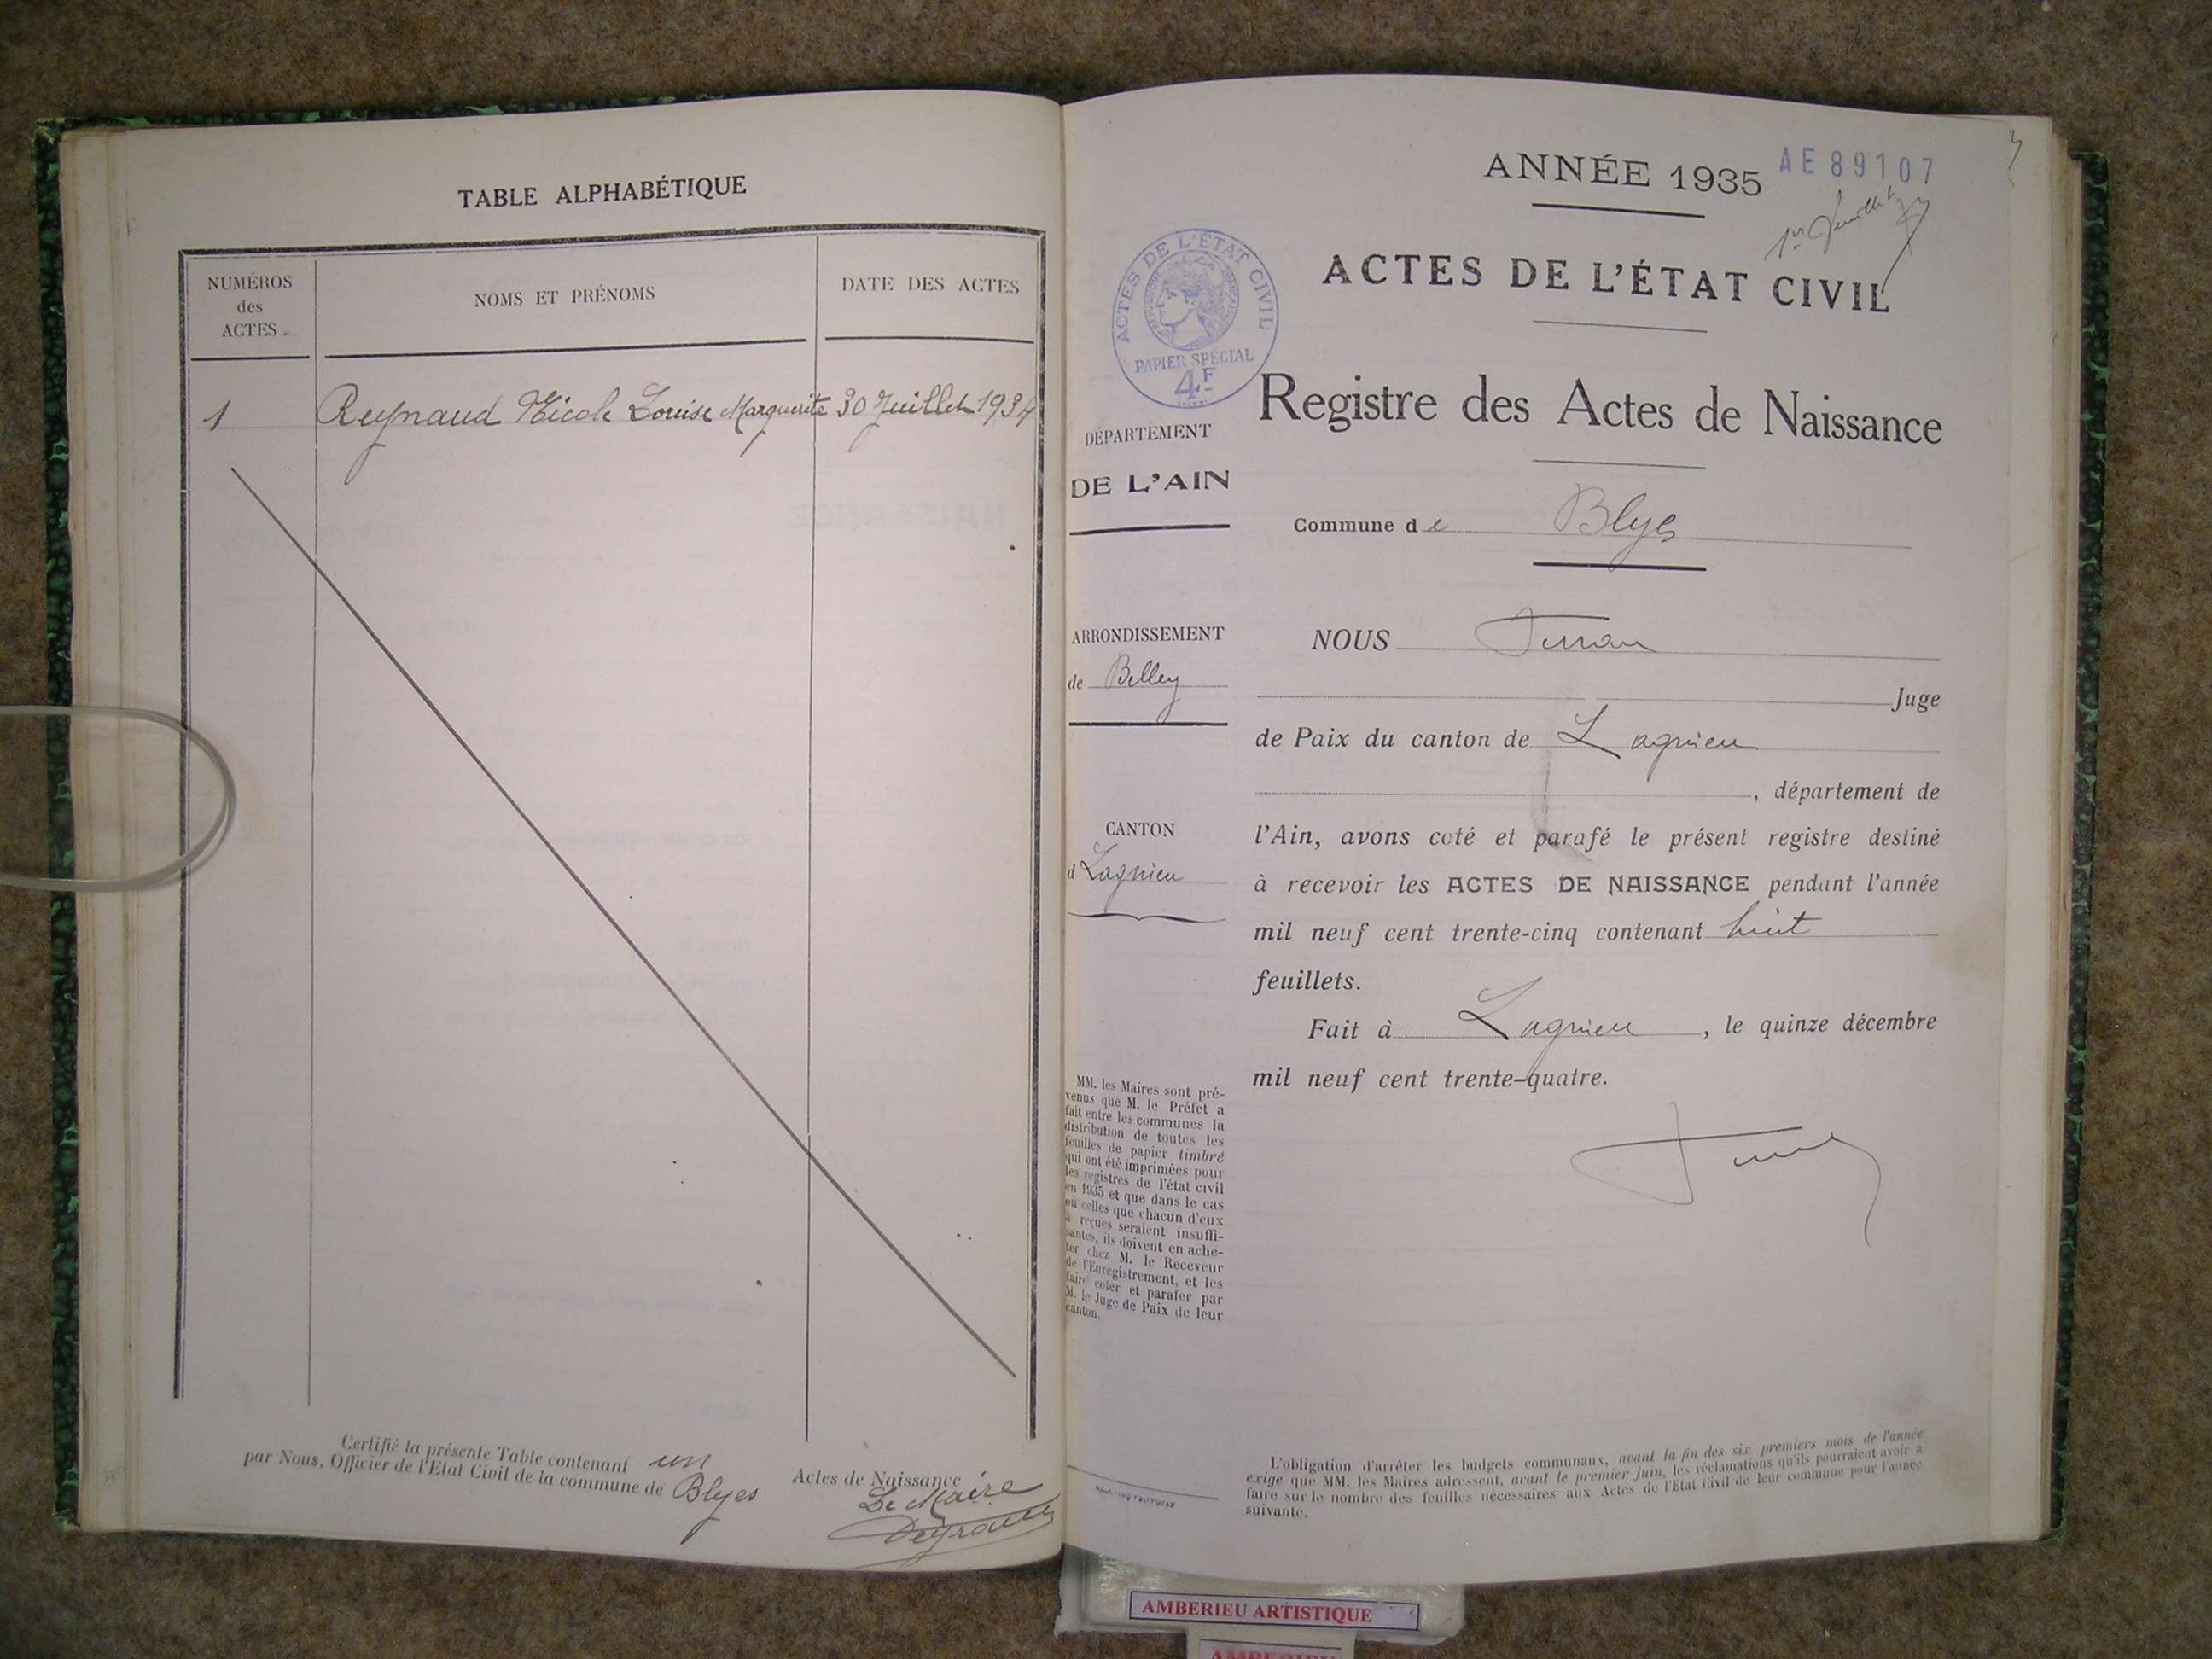 TABLE ALPHABÉTIQUE
NUMÉROS
des
ACTES
NOMS ET PRÉNOMS
DATE DES ACTES
1 Reynaud Nicole Louise Marguerite 30 Juillet 1934
Certifié la présente Table contenant un Actes de Naissance
par Nous, Officier de l'Etat Civil de la commune de Blyes
Le Maire
ANNÉE 1935
AE 89107
1er feuillet
ACTES DE L'ÉTAT CIVIL
ACTES DE L'ÉTAT CIVIL
PAPIER SPÉCIAL
4F
Registre des Actes de Naissance
DÉPARTEMENT
DE L'AIN
Commune de Blyes
ARRONDISSEMENT
de Belley
CANTON
d Lagnieu
NOUS
Juge
de Paix du canton de Lagnieu
, département de
l'Ain, avons coté et parafé le présent registre destiné
à recevoir les ACTES DE NAISSANCE pendant l'année
mil neuf cent trente-cinq contenant huit
feuillets.
Fait à Lagnieu, le quinze décembre
mil neuf cent trente-quatre.
MM. les Maires sont pré-
venus que M. le Préfet a
fait entre les communes la
distribution de toutes les
feuilles de papier timbré
qui ont été imprimées pour
les registres de l'état civil
en 1935 et que dans le cas
où celles que chacun d'eux
a reçues seraient insuffi-
santes, ils doivent en ache-
ter chez M. le Receveur
de l'Enregistrement, et les
faire coter et parafer par
M. le Juge de Paix de leur
canton.
L'obligation d'arrêter les budgets communaux, avant la fin des six premiers mois de l'année
exige que MM. les Maires adressent, avant le premier juin, les réclamations qu'ils pourraient avoir à
faire sur le nombre des feuilles nécessaires aux Actes de l'Etat Civil de leur commune pour l'année
suivante.
AMBERIEU ARTISTIQUE
AMBERIEU